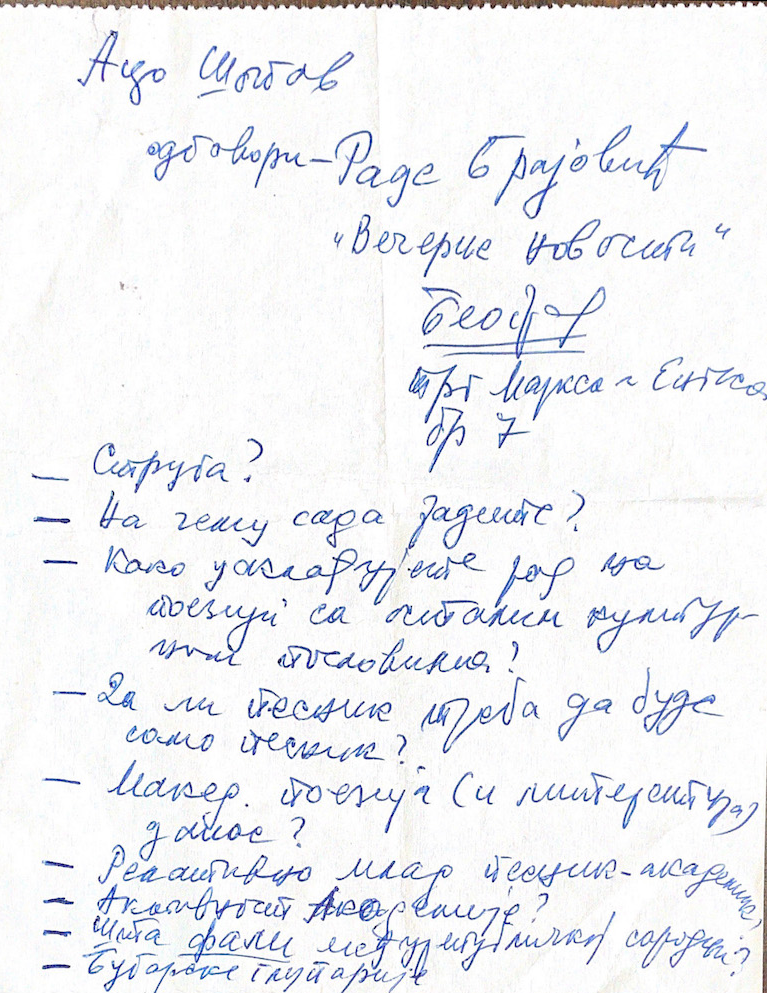 Ацо Шопов
одговори – Раде Брајовић
„Вечерње новости"
Београд
Трг Маркса и Енгелса
бр 7
— Струга?
— На чему сада радите?
— Како усклађујете рад на
поезији са осталим култур-
ним пословима?
— Да ли песник треба да буде
само песник?
— Макед. поезија (и литература)
данас?
— Релативно млад песник-академик,
— Активност Академије?
— Шта фали међурепубличкој сарадњи?
— Бугарске глупарије